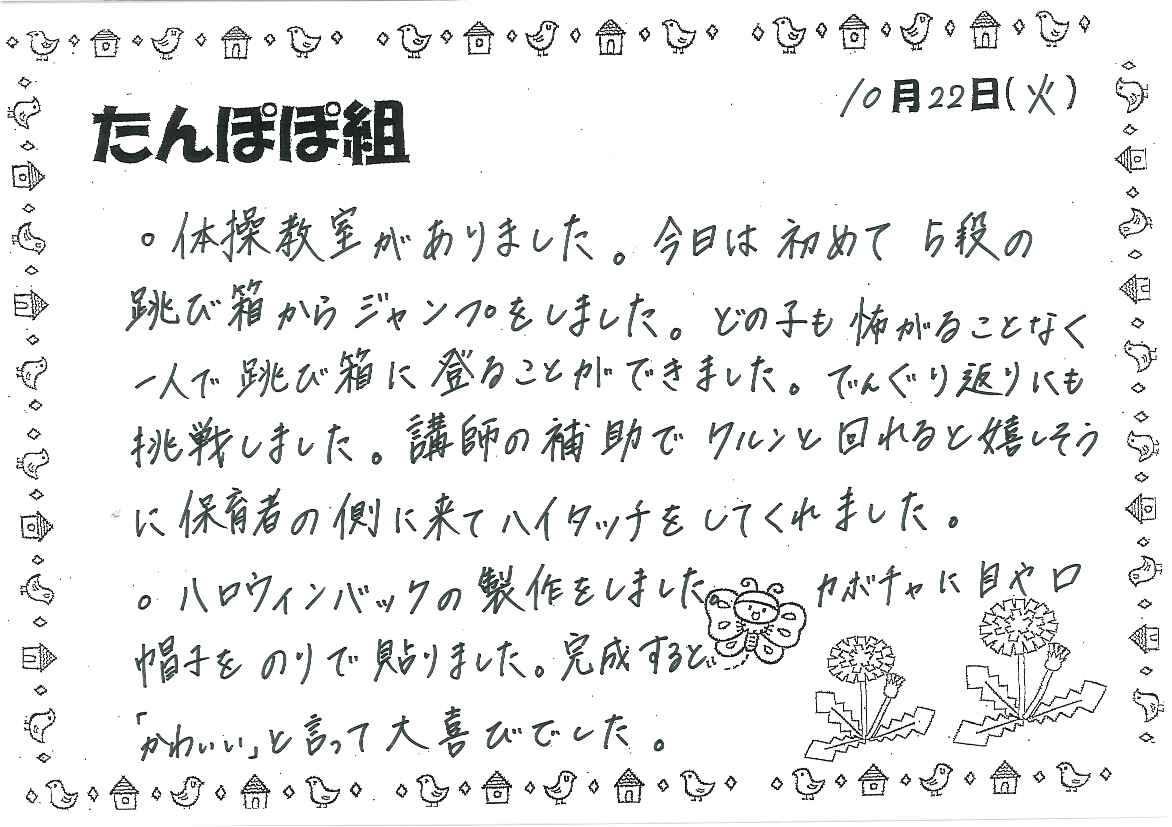 10月22日(火)
たんぽぽ組
。体操教室がありました。今日は初めて5段の
跳び箱からジャンプをしました。どの子も怖がることなく
一人で跳び箱に登ることができました。でんぐり返りにも
挑戦しました。講師の補助でクルンと回れると嬉しそう
に保育者の側に来てハイタッチをしてくれました。
。ハロウィンバックの製作をしました。カボチャに目や口
帽子をのりで貼りました。完成すると
「かわいい」と言って大喜びでした。